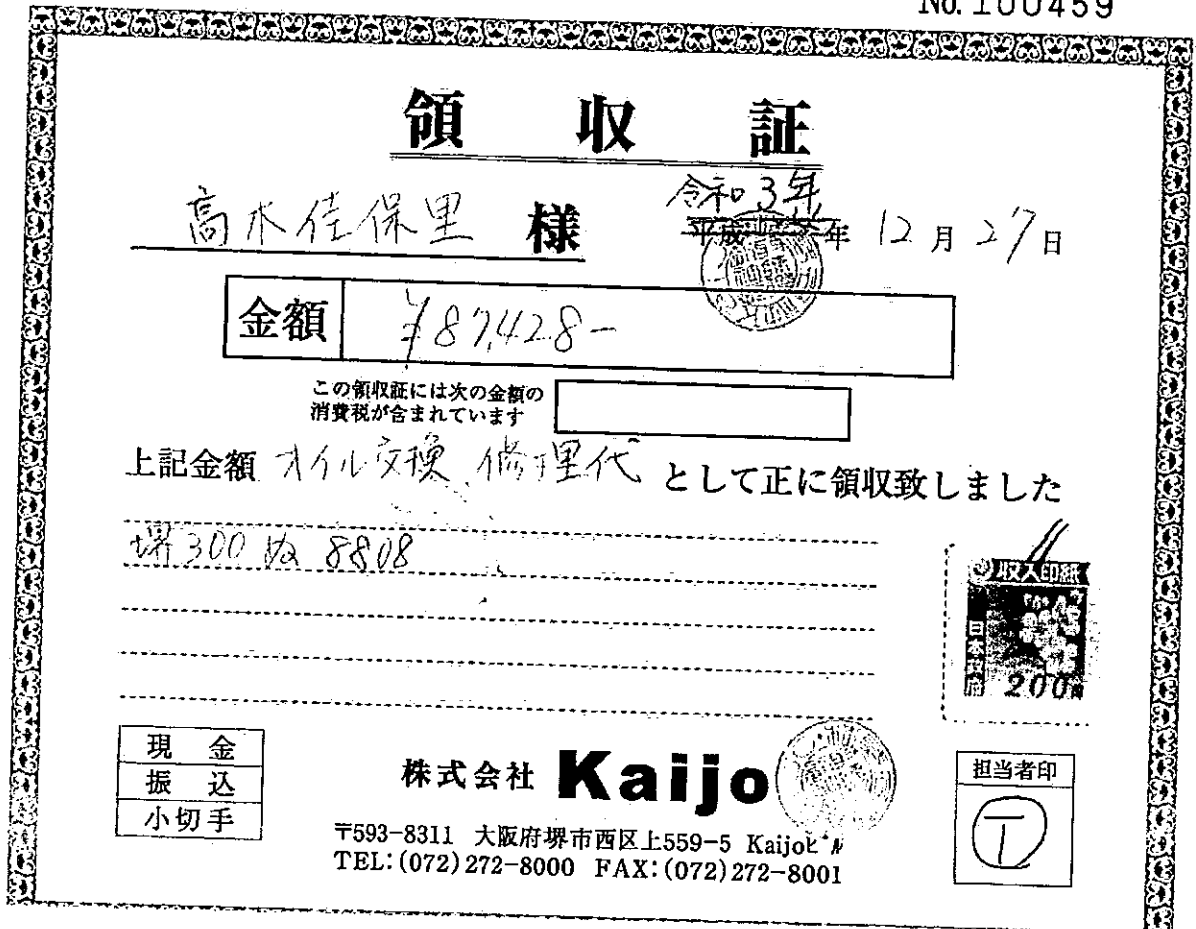 No.100459
領収証
高木佳保里 様
令和3年
平成 年 12月27日
金額 ¥87,428-
この領収証には次の金額の
消費税が含まれています
上記金額 オイル交換 修理代 として正に領収致しました
堺300 ぬ 8808
収入印紙
日本政府
200円
現金
振込
小切手
株式会社 Kaijo
担当者印
T
〒593-8311 大阪府堺市西区上559-5 Kaijoビル
TEL:(072)272-8000 FAX:(072)272-8001